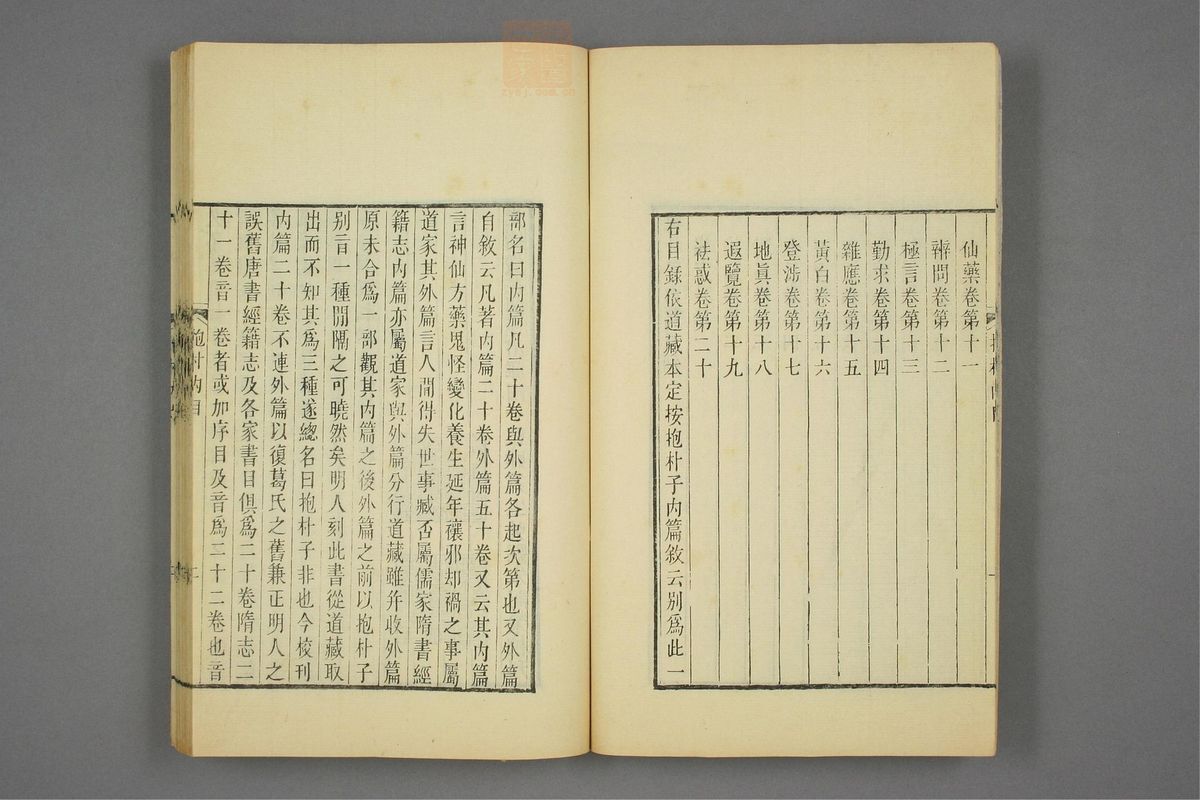 仙藥卷第十一
辯問卷第十二
極言卷第十三
勤求卷第十四
雜應卷第十五
黃白卷第十六
登涉卷第十七
地眞卷第十八
遐覽卷第十九
袪惑卷第二十
右目錄依道藏本定按抱朴子內篇敘云別爲此一
部名曰內篇凡二十卷與外篇各起次第也又外篇
自敘云凡著內篇二十卷外篇五十卷又云其內篇
言神仙方藥鬼怪變化養生延年禳邪却禍之事屬
道家其外篇言人閒得失世事臧否屬儒家隋書經
籍志內篇亦屬道家與外篇分行道藏雖并收外篇
原未合爲一部觀其內篇之後外篇之前以抱朴子
別言一種閒隔之可曉然矣明人刻此書從道藏取
出而不知其爲三種遂總名曰抱朴子非也今校刊
內篇二十卷不連外篇以復葛氏之舊兼正明人之
誤舊唐書經籍志及各家書目俱爲二十卷隋志二
十一卷音一卷者或加序目及音爲二十二卷也音
抱朴內目
二